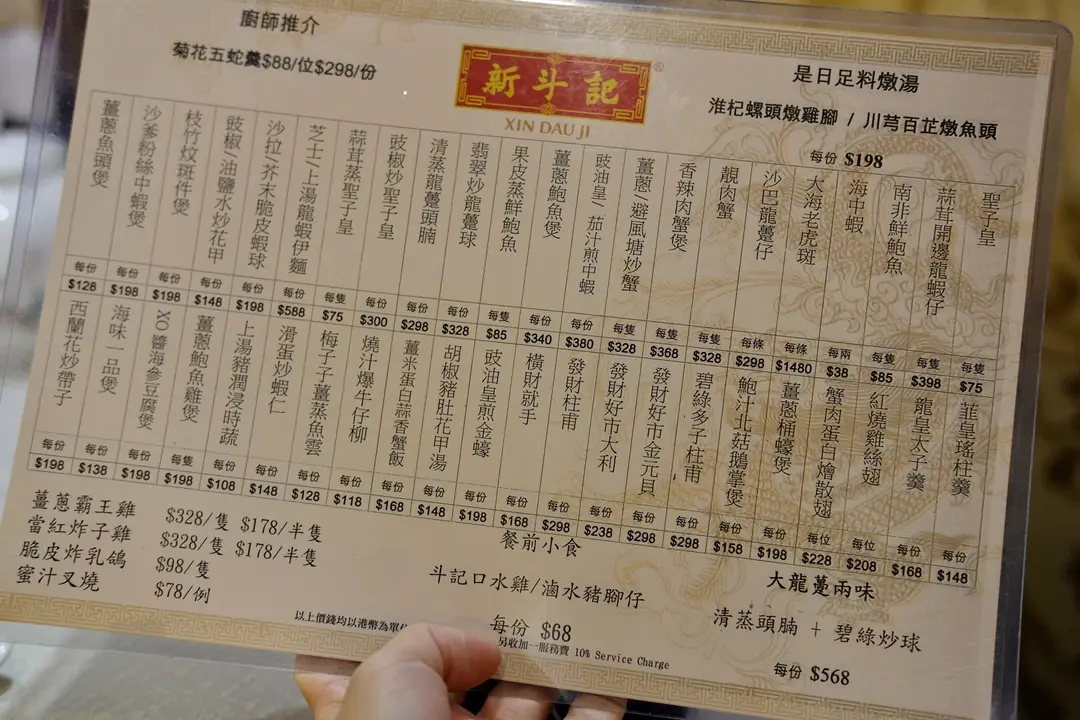 廚師推介
菊花五蛇羹$88/位$298/份
新斗記®
XIN DAU JI
是日足料燉湯
淮杞螺頭燉雞腳 / 川芎百芷燉魚頭
每份 $198
聖子皇 每隻 $75
蒜茸開邊龍蝦仔 每隻 $398
南非鮮鮑魚 每隻 $85
海中蝦 每兩 $38
大海老虎斑 每條 $1480
沙巴龍躉仔 每條 $298
靚肉蟹 每隻 $328
香辣肉蟹煲 每隻 $368
薑蔥/避風塘炒蟹 每隻 $328
豉油皇/茄汁煎中蝦 每份 $380
薑蔥鮑魚煲 每份 $340
果皮蒸鮮鮑魚 每隻 $85
翡翠炒龍躉球 每份 $328
清蒸龍躉頭腩 每份 $298
豉椒炒聖子皇 每份 $300
蒜茸蒸聖子皇 每隻 $75
芝士/上湯龍蝦伊麵 每份 $588
沙拉/芥末脆皮蝦球 每份 $198
豉椒/油鹽水炒花甲 每份 $148
枝竹炆斑件煲 每份 $198
沙爹粉絲中蝦煲 每份 $198
薑蔥魚頭煲 每份 $128
韮皇瑤柱羹 每份 $148
龍皇太子羹 每份 $168
紅燒雞絲翅 每位 $208
蟹肉蛋白燴散翅 每位 $228
薑蔥桶蠔煲 每份 $198
鮑汁北菇鵝掌煲 每份 $158
碧綠多子柱甫 每份 $298
發財好市金元貝 每份 $298
發財好市大利 每份 $238
發財柱甫 每份 $298
橫財就手 每份 $168
豉油皇煎金蠔 每份 $198
胡椒豬肚花甲湯 每份 $148
薑米蛋白蒜香蟹飯 每份 $168
燒汁爆牛仔柳 每份 $118
梅子子薑蒸魚雲 每份 $128
滑蛋炒蝦仁 每份 $148
上湯豬潤浸時蔬 每份 $108
薑蔥鮑魚雞煲 每隻 $198
XO醬海參豆腐煲 每份 $198
海味一品煲 每份 $138
西蘭花炒帶子 每份 $198
薑蔥霸王雞 $328/隻 $178/半隻
當紅炸子雞 $328/隻 $178/半隻
脆皮炸乳鴿 $98/隻
蜜汁叉燒 $78/例
餐前小食
斗記口水雞/滷水豬腳仔
每份 $68
大龍躉兩味
清蒸頭腩 + 碧綠炒球
每份 $568
以上價錢均以港幣為單
另收加一服務費 10% Service Charge